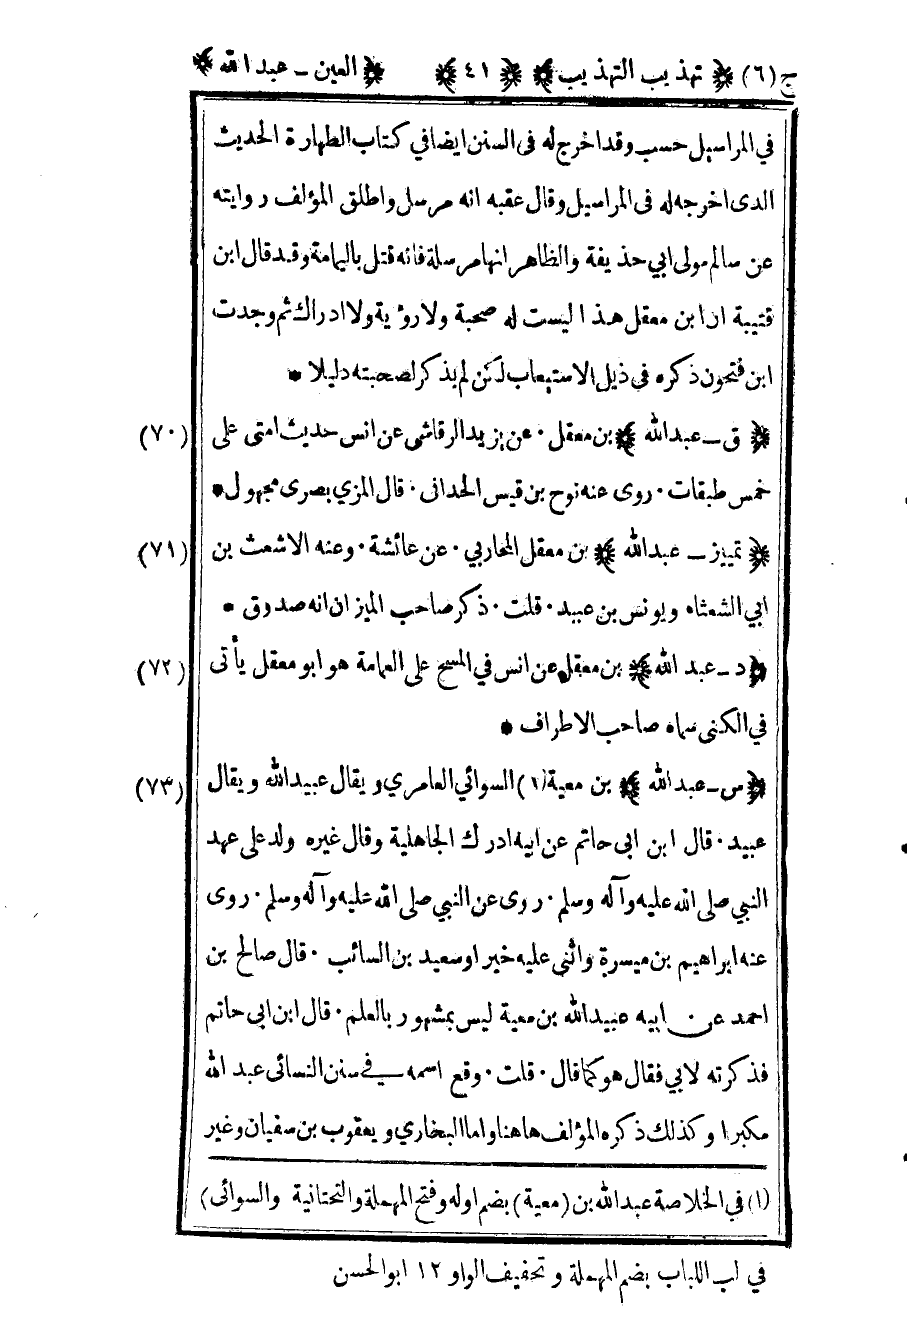 ج(٦) ﴿ تهذيب التهذيب ﴾ ﴿ ٤١ ﴾ ﴿ العين ـ عبد الله ﴾
في المراسيل حسب وقد اخرج له فى السنن ايضا في كتاب الطهارة الحديث
الذى اخرجه له فى المراسيل وقال عقبه انه مرسل واطلق المؤلف روايته
عن سالم مولى ابي حذيفة والظاهر انها مرسلة فانه قتل باليمامة وقد قال ابن
قتيبة ان ابن معقل هذا ليست له صحبة ولا رؤية ولا ادراك ثم وجدت
ابن فتحون ذكره في ذيل الاستيعاب لكن لم يذكر لصحبته دليلا *
﴿ ق ـ عبدالله ﴾ بن معقل ٠ عن يزيد الرقاشى عن انس حديث امتى على (٧٠)
خمس طبقات ٠ روى عنه نوح بن قيس الحدانى ٠ قال المزي بصرى مجهول *
﴿ تمييز ـ عبدالله ﴾ بن معقل المحاربي ٠ عن عائشة ٠ وعنه الاشعث بن (٧١)
ابي الشعثاء ويونس بن عبيد ٠ قلت ٠ ذكر صاحب الميزان انه صدوق *
﴿ د ـ عبد الله ﴾ بن معقل عن انس في المسح على العمامة هو ابو معقل يأتى (٧٢)
في الكنى سماه صاحب الاطراف *
﴿ س ـ عبدالله ﴾ بن معية (١) السوائي العامري ويقال عبيدالله ويقال (٧٣)
عبيد ٠ قال ابن ابى حاتم عن ابيه ادرك الجاهلية وقال غيره ولد على عهد
النبي صلى الله عليه وآله وسلم ٠ روى عن النبي صلى الله عليه وآله وسلم ٠ روى
عنه ابراهيم بن ميسرة واثنى عليه خيرا وسعيد بن السائب ٠ قال صالح بن
احمد عن ابيه عبيدالله بن معية ليس بمشهور بالعلم ٠ قال ابن ابى حاتم
فذكرته لابي فقال هو كما قال ٠ قلت ٠ وقع اسمه في سنن النسائى عبد الله
مكبرا وكذلك ذكره المؤلف هاهنا واما البخاري ويعقوب بن سفيان وغير
(١) في الخلاصة عبدالله بن (معية) بضم اوله وفتح المهملة والتحتانية والسوائى)
في لب اللباب بضم المهملة وتخفيف الواو ١٢ ابوالحسن